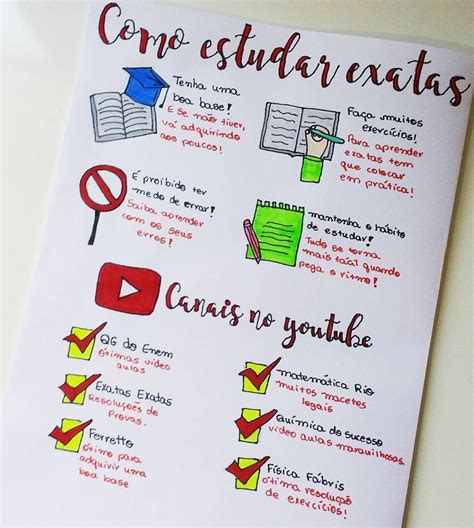 Como estudar exatas
Tenha uma
boa base!
E se não tiver,
vá adquirindo
aos poucos!
Faça muitos
exercícios!
Para aprender
exatas tem
que colocar
em prática!
É proibido ter
medo de errar!
Saiba aprender
com os seus
erros!
mantenha o hábito
de estudar!
Tudo se torna
mais fácil quando
pega o ritmo!
Canais no youtube
QG do Enem
ótimas vídeo
aulas
Exatas Exatas
Resoluções de
provas.
Ferretto
ótimo para
adquirir uma
boa base
matemática Rio
muitos macetes
legais
Química do sucesso
vídeo aulas maravilhosas.
Física Fábris
ótima resolução
de exercícios!